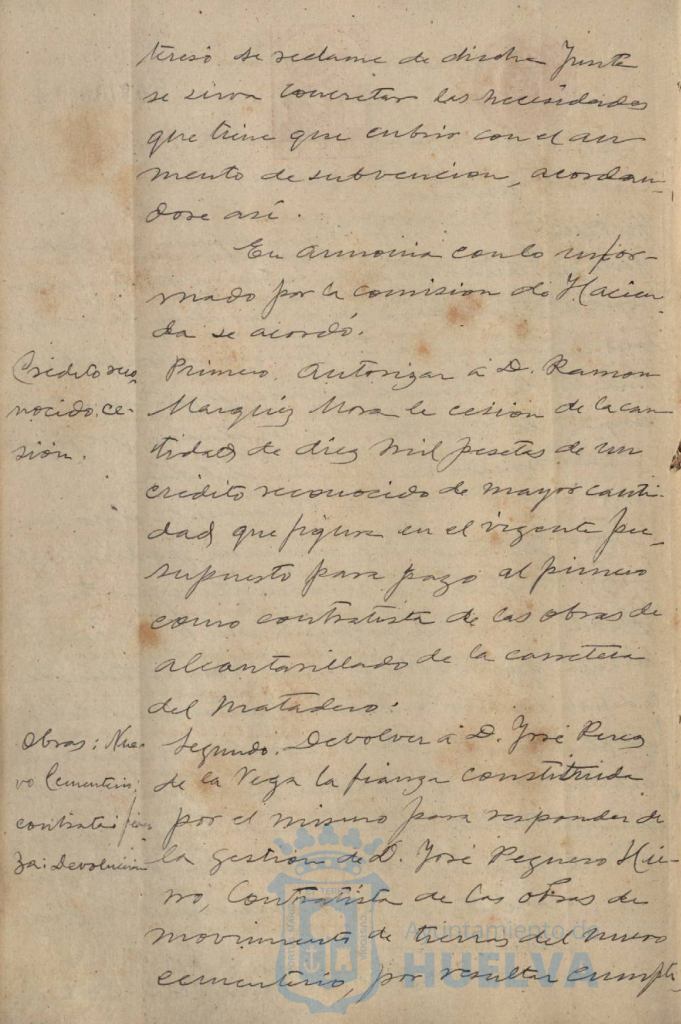 teresó se reclame de dicha Junta
se sirva concretar las necesidades
que tiene que cubrir con el au
mento de subvencion, acordan-
dose así.
En armonia con lo infor-
mado por la comision de Hacien-
da se acordó.
Crédito reco-
nocido. ce-
sión.
Primero. Autorizar á D. Ramon
Marquez Mora la cesion de la can
tidad de diez mil pesetas de un
crédito reconocido de mayor canti-
dad que figura en el vigente pre-
supuesto para pago al primero
como contratista de las obras de
alcantarillado de la carretera
del Matadero:
Obras: Nue-
vo Cementerio;
contrata: fian
za: Devolucion
Segundo. Devolver á D. José Perez
de la Vega la fianza constituida
por el mismo para responder de
la gestion de D. José Peguero Hie-
rro, Contratista de las obras de
movimiento de tierras del nuevo
cementerio, por resultar cumpli
Ayuntamiento de
HUELVA